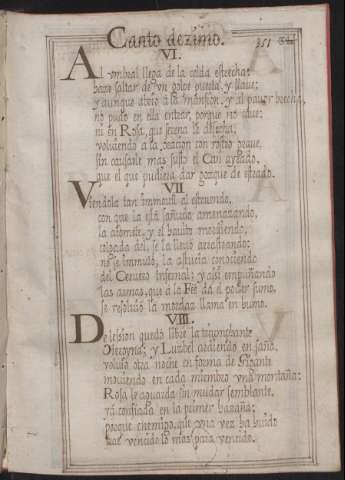 Canto dezimo.
351
VI.
Al umbral llega de la celda estrecha;
haze saltar de un golpe puerta, y llave;
y aunque abrió à la mansion, y al pavor brecha,
no pudo en ella entrar, porque no cabe:
ni en Rosa, que serena le desecha;
volviendo à la oracion con rostro grave,
sin causarle mas susto el Can ayrado,
que el que pudiera dar gozque de estrado.
VII
Viendola tan immobil al estruendo,
con que la està sañudo amenazando,
la acomete, y el havito mordiendo,
colgada del, se la llevò arrastrando;
no se immutò, la astucia conociendo
del Cerbero Infernal; y assi empuñando
las armas, que à la Feè dà el poder sumo,
se resolviò la mordaz llama en humo.
VIII.
De lesion quedò libre la triunphante
Heroyna; y Luzbel ardiendo en saña,
volviò otra noche en forma de Gigante
moviendo en cada miembro una montaña:
Rosa le aguarda sin mudar semblante,
yà confiada en la primer hazaña;
porque enemigo, que una vez ha huido
vàs vencido lo mas para vencido.